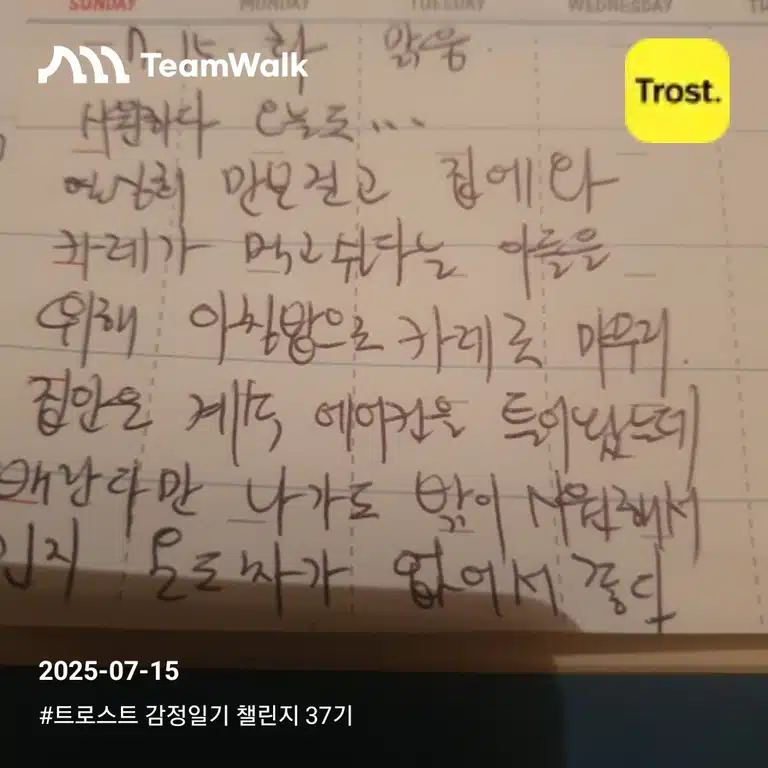 SUNDAY MONDAY TUESDAY WEDNESDAY
TeamWalk
Trost.
7. 15. 화 맑음
시원하다 오늘도...
열심히 만보걷고 집에와
카레가 먹고싶다는 아들을
위해 아침밥으로 카레로 마무리.
집안은 계속 에어컨을 틀어놨는데
베란다만 나가도 밖이 시원해서
온도차가 없어서 좋다
2025-07-15
#트로스트 감정일기 챌린지 37기